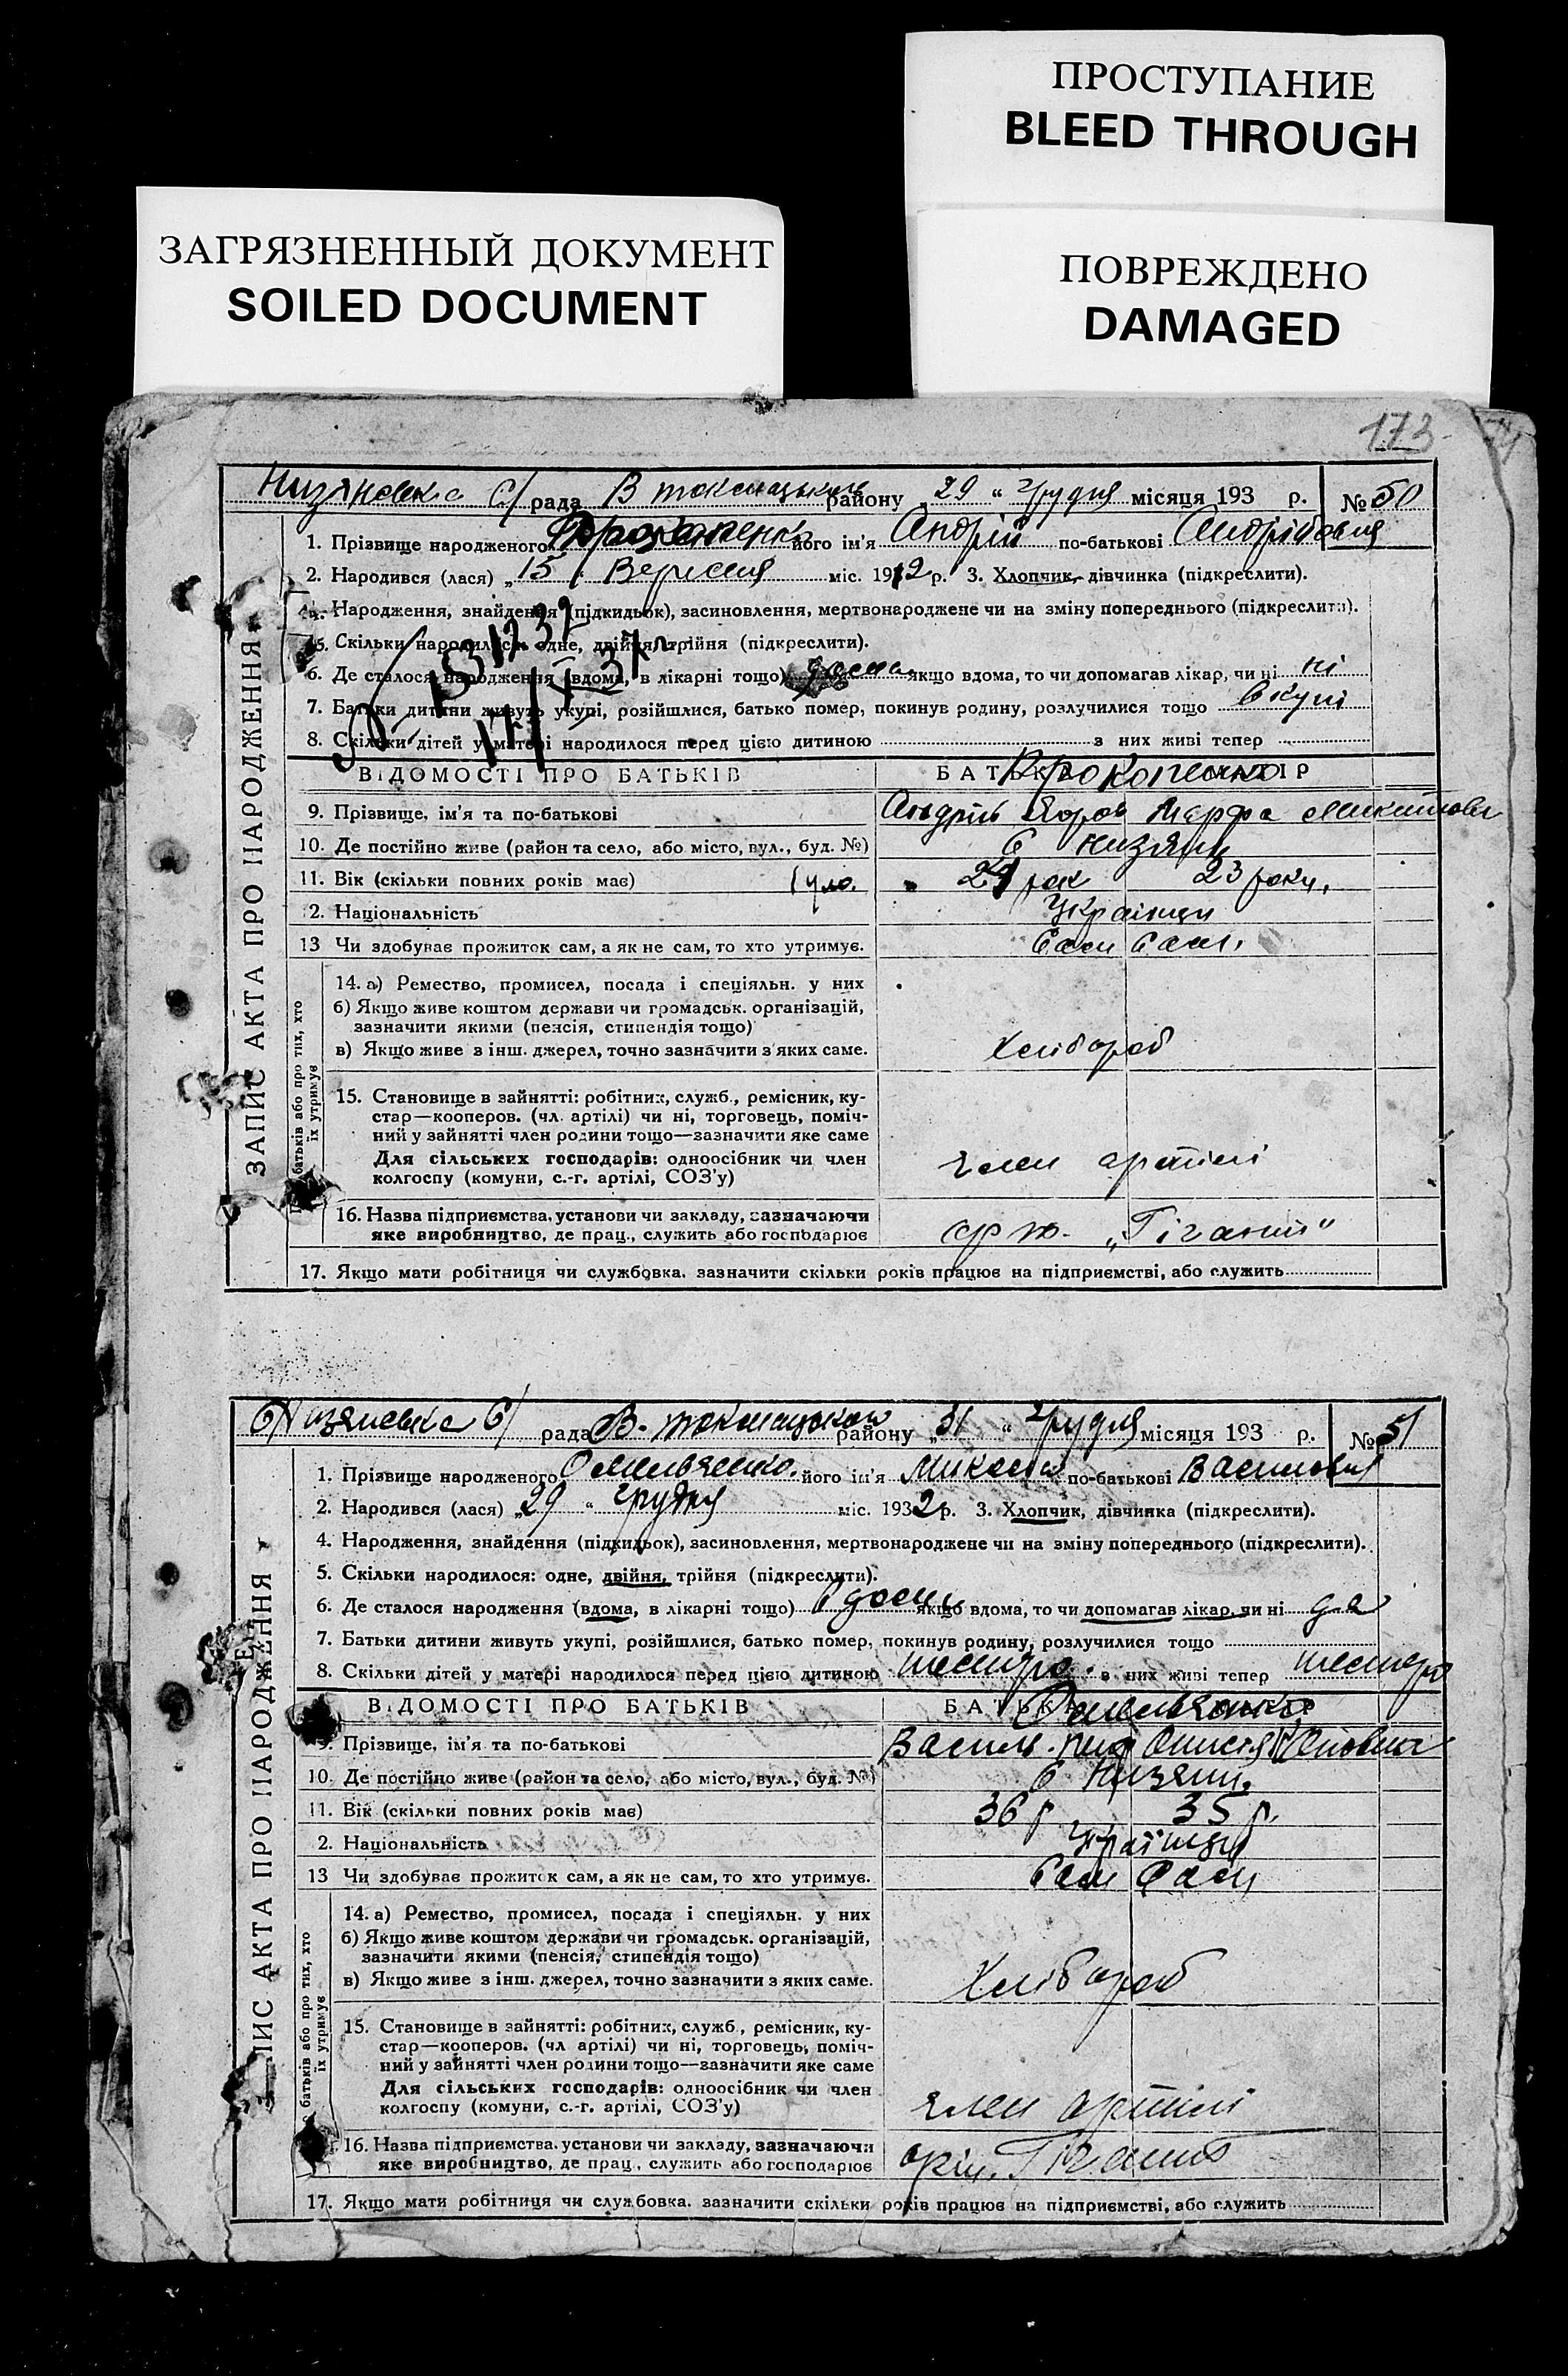 ПРОСТУПАНИЕ
BLEED THROUGH
ЗАГРЯЗНЕННЫЙ ДОКУМЕНТ
SOILED DOCUMENT
ПОВРЕЖДЕНО
DAMAGED
173
Низянсвка С/ рада В токмацьког району „29“ Грудня місяця 193 р. № 50
1. Прізвище народженого його ім'я Андрій по-батькові Андрійовия
2. Народився (лася) „15“ Вересня міс. 1912 р. 3. Хлопчик, дівчинка (підкреслити).
4. Народження, знайдення (підкидьок), засиновлення, мертвонароджене чи на зміну попереднього (підкреслити).
5. Скільки народилося: одне, двійня, трійня (підкреслити).
6. Де сталося народження (вдома, в лікарні тощо) дома якщо вдома, то чи допомагав лікар, чи ні ні
7. Батьки дитини живуть укупі, розійшлися, батько помер, покинув родину, розлучилися тощо вкупі
8. Скільки дітей у матері народилося перед цією дитиною з них живі тепер
ВІДОМОСТІ ПРО БАТЬКІВ БАТЬКО МАТІР
Прокопенко
9. Прізвище, ім'я та по-батькові Андрій Егоров Марфа Микитовн
10. Де постійно живе (район та село, або місто, вул., буд. №) С Низяни
11. Вік (скільки повних років має) 21 рок 23 роки,
2. Національність Українци
13 Чи здобуває прожиток сам, а як не сам, то хто утримує. Сам Сам,
14. а) Ремество, промисел, посада і спеціяльн. у них
б) Якщо живе коштом держави чи громадськ. організацій,
зазначити якими (пенсія, стипендія тощо)
в) Якщо живе з інш. джерел, точно зазначити з яких саме. Хлібороб
15. Становище в зайнятті: робітник, служб., ремісник, ку-
стар—кооперов. (чл. артілі) чи ні, торговець, поміч-
ний у зайнятті член родини тощо—зазначити яке саме
Для сільських господарів: одноосібник чи член
колгоспу (комуни, с.-г. артілі, СОЗ'у) Член артілі
16. Назва підприємства, установи чи закладу, зазначаючи
яке виробництво, де прац., служить або господарює арт. „Гігант“
17. Якщо мати робітниця чи службовка. зазначити скільки років працює на підприємстві, або служить
ЗАПИС АКТА ПРО НАРОДЖЕННЯ
батьків або про тих, хто
їх утримує
Низянсвка С/ рада В. токмацьког району „31“ Грудня місяця 193 р. № 51
1. Прізвище народженого Омельяненко. його ім'я Микола по-батькові Василович
2. Народився (лася) „29“ Грудня міс. 1932 р. 3. Хлопчик, дівчинка (підкреслити).
4. Народження, знайдення (підкидьок), засиновлення, мертвонароджене чи на зміну попереднього (підкреслити).
5. Скільки народилося: одне, двійня, трійня (підкреслити).
6. Де сталося народження (вдома, в лікарні тощо) в доми якщо вдома, то чи допомагав лікар, чи ні да
7. Батьки дитини живуть укупі, розійшлися, батько помер, покинув родину, розлучилися тощо
8. Скільки дітей у матері народилося перед цією дитиною шестро. з них живі тепер шестеро
ВІДОМОСТІ ПРО БАТЬКІВ
9. Прізвище, ім'я та по-батькові Василь
10. Де постійно живе (район та село, або місто, вул., буд. №) С Низяни.
11. Вік (скільки повних років має) 36 р. 35 р.
2. Національність Українци
13 Чи здобуває прожиток сам, а як не сам, то хто утримує. Сам Сам
14. а) Ремество, промисел, посада і спеціяльн. у них
б) Якщо живе коштом держави чи громадськ. організацій,
зазначити якими (пенсія, стипендія тощо)
в) Якщо живе з інш. джерел, точно зазначити з яких саме. Хлібороб
15. Становище в зайнятті: робітник, служб., ремісник, ку-
стар—кооперов. (чл артілі) чи ні, торговець, поміч-
ний у зайнятті член родини тощо—зазначити яке саме
Для сільських господарів: одноосібник чи член
колгоспу (комуни, с.-г. артілі, СОЗ'у) Член артілі
16. Назва підприємства, установи чи закладу, зазначаючи
яке виробництво, де прац., служить або господарює Гігант
17. Якщо мати робітниця чи службовка. зазначити скільки років працює на підприємстві, або служить
ПИС АКТА ПРО НАРОДЖЕННЯ
батьків або про тих, хто
їх утримує